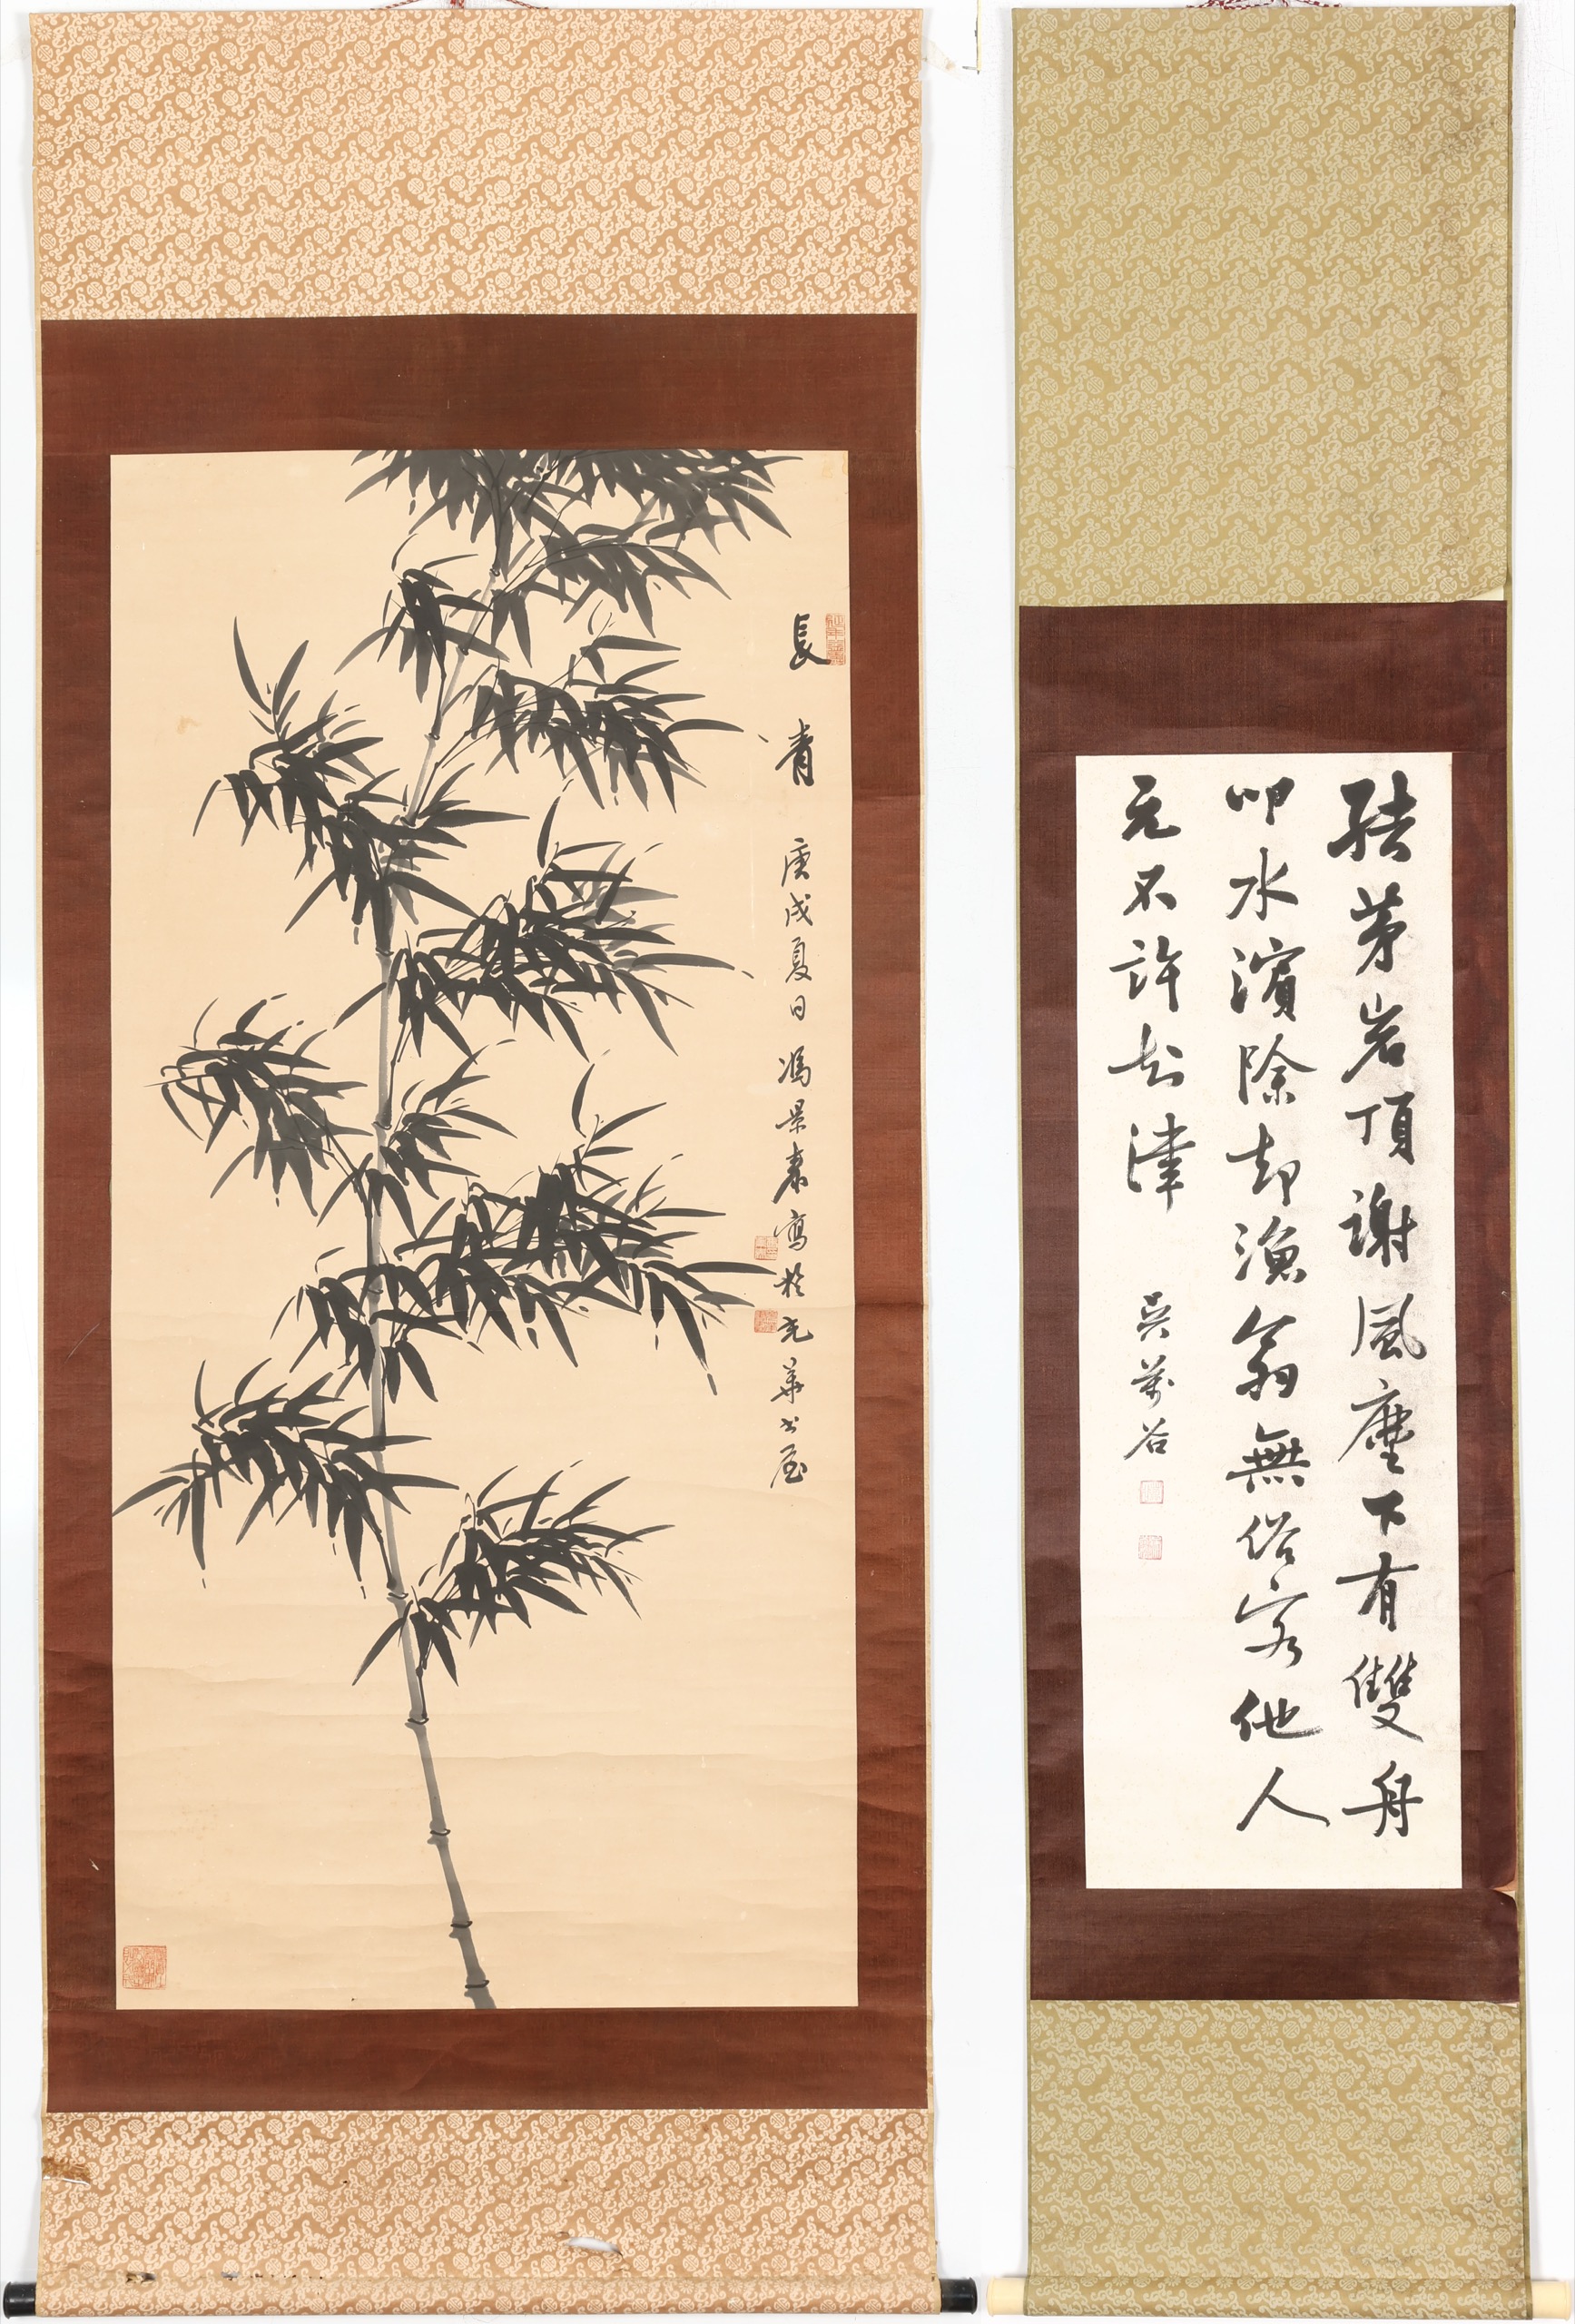 長青 庚戌夏日馮景泰寫於光華書屋
結茅岩頂謝風塵下有雙舟
叩水濱除却漁翁無俗客他人
元不許知津 吳萬谷